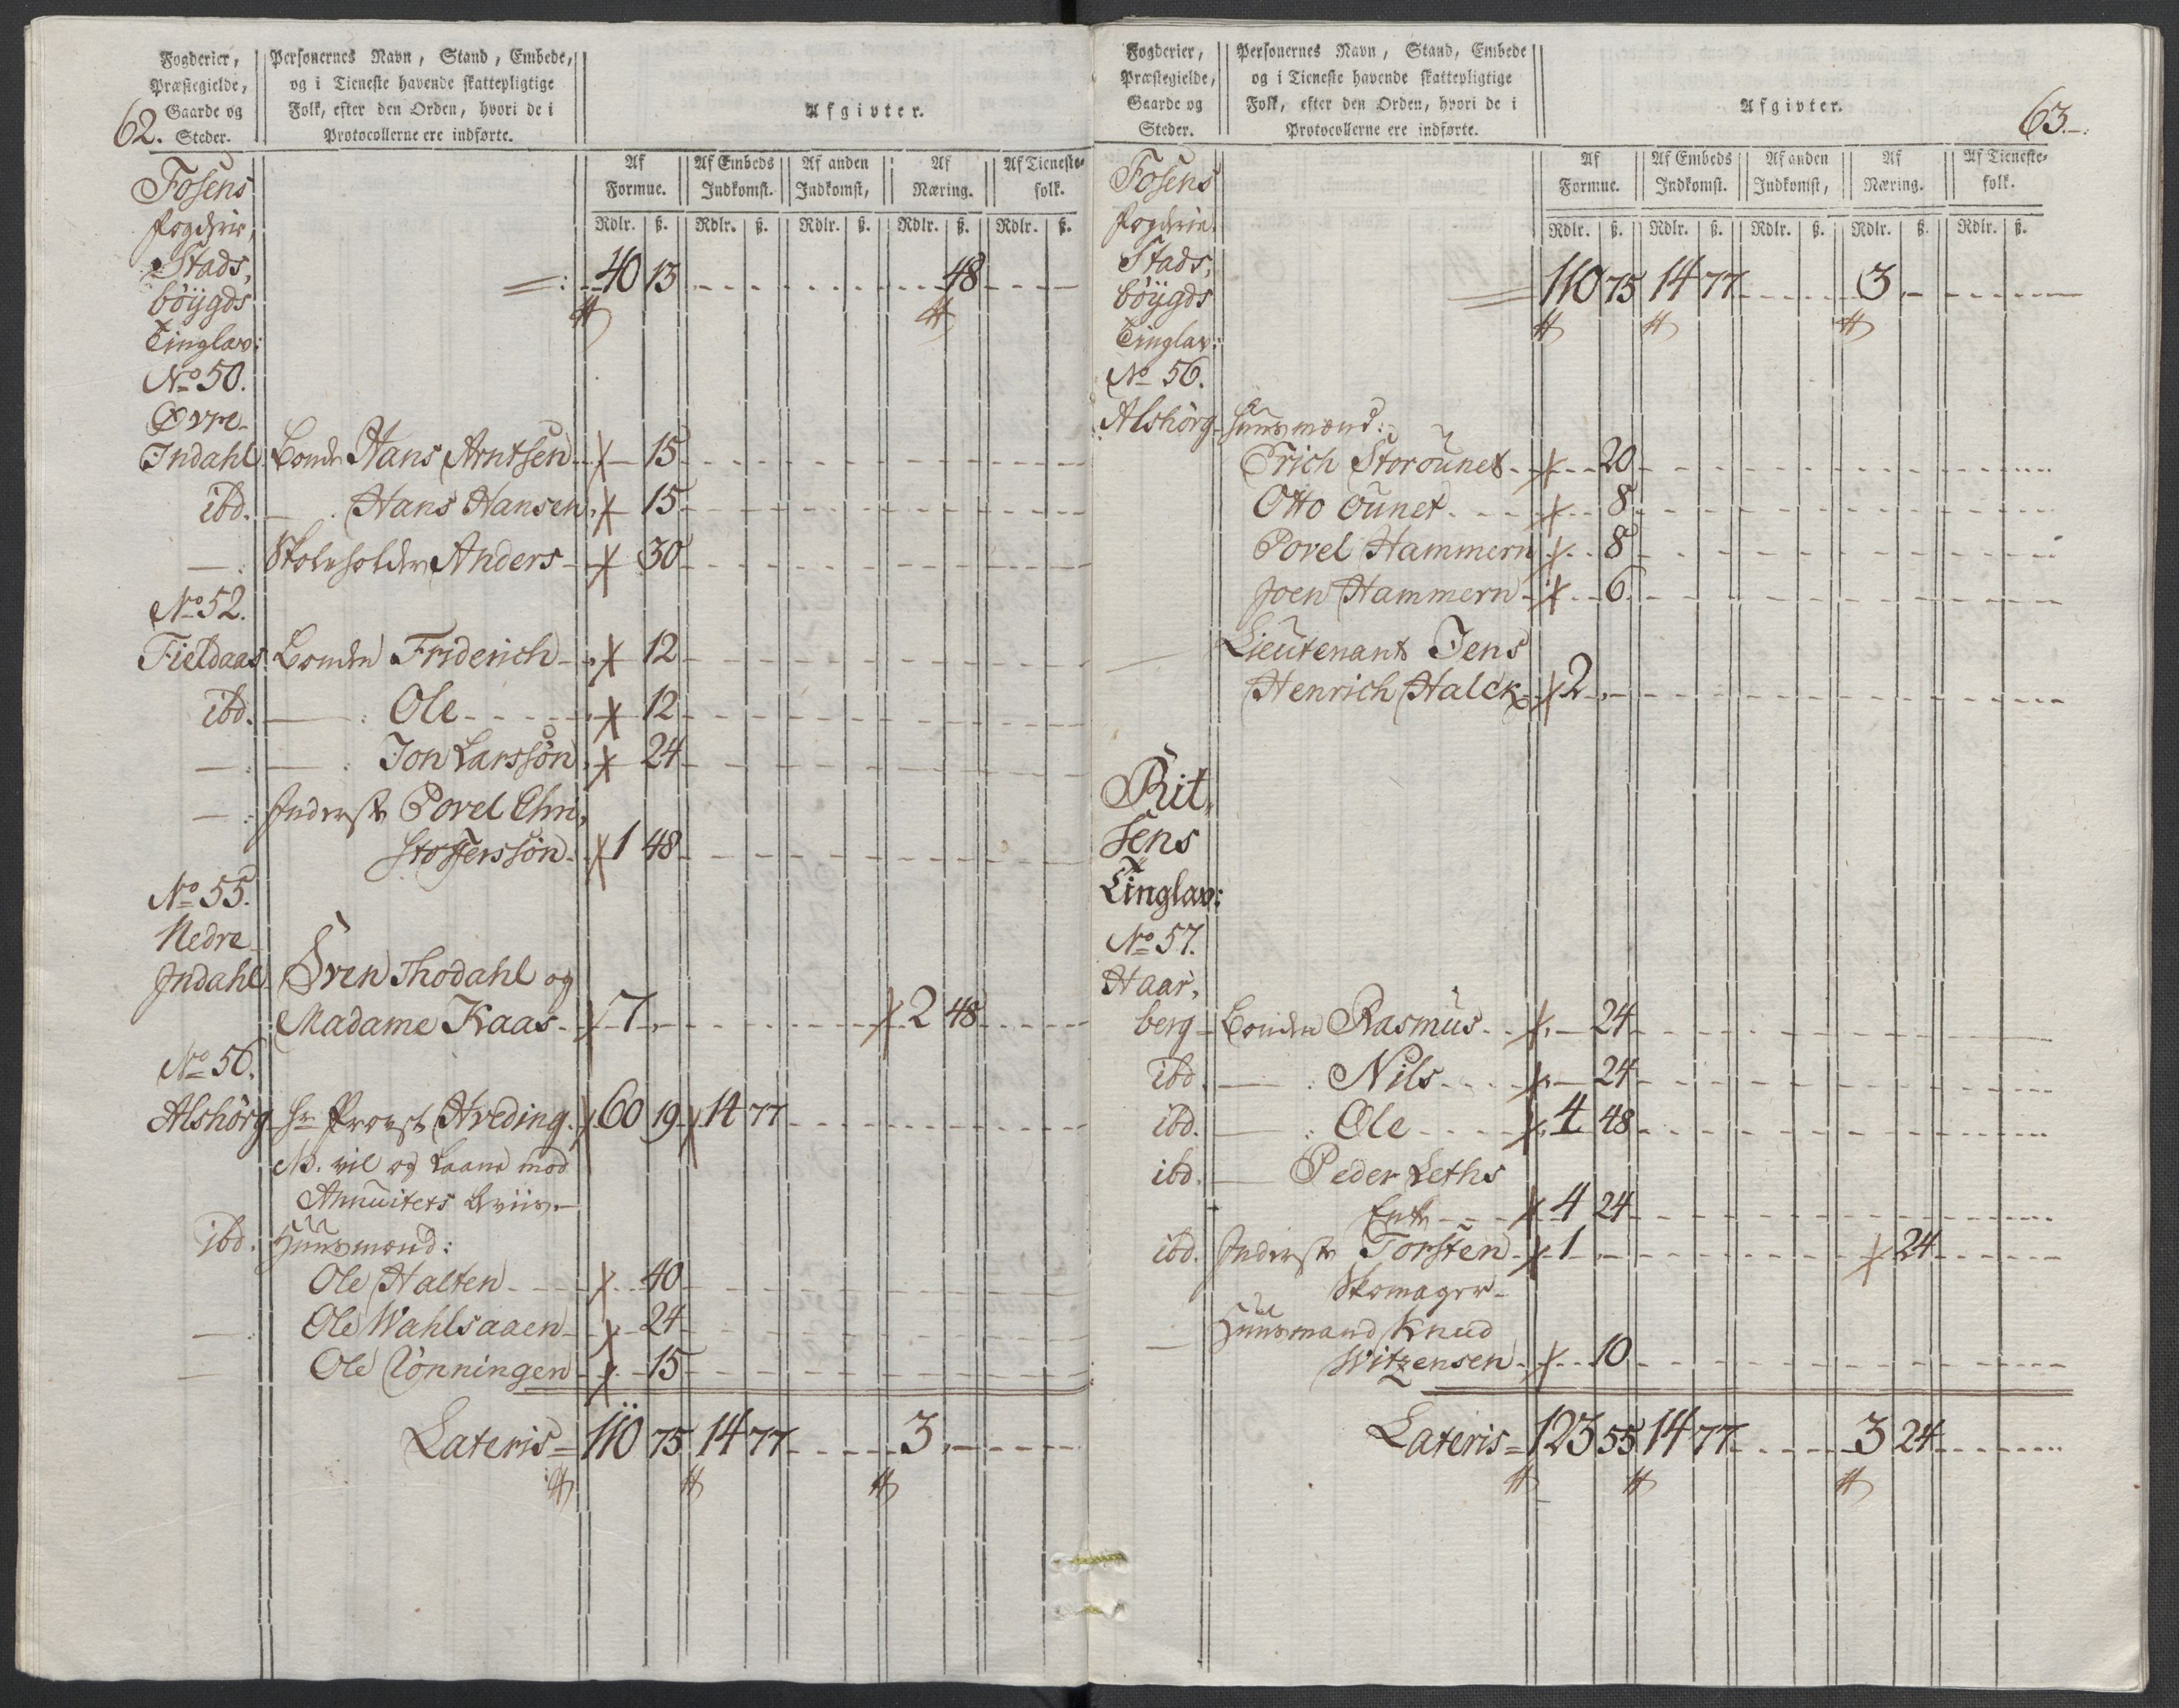 62.
Fogderier,
Præstegielde,
Gaarde og
Steder.
Personernes Navn, Stand, Embede,
og i Tieneste havende skattepligtige
Folk, efter den Orden, hvori de i
Protocollerne ere indførte.
Afgivter.
Af
Formue.
Af Embeds
Indkomst.
Af anden
Indkomst,
Af
Næring.
Af Tieneste-
folk.
Rdlr. ß. Rdlr. ß. Rdlr. ß. Rdlr. ß. Rdlr. ß.
Fosens
fogderie,
Stads,
böygds
Tinglav:
40 13 48
No 50.
Øvre-
Indahl Bonde Hans Arntsen 15
ibd. — Hans Hansen 15
— Skoleholder Anders 30
No 52.
Fieldaas Bonde Friderich 12
ibd. — Ole 12
— — Jon Larssön 24
— Inderste Povel Chri,
stofferssön 1 48
No 55.
Nedre
Indahl Sven Thodahl og
Madame Kaas 7 2 48
No 56.
Alshörg Hr Provst Hveding 60 19 14 77
NB. vil og laane mod
Annuitets Beviis.
Ibd. Huusmænd:
Ole Halten 40
— Ole Wahlsaaen 24
— Ole Rönningen 15
Lateris = 110 75 14 77 3
63.
Fogderier,
Præstegielde,
Gaarde og
Steder.
Personernes Navn, Stand, Embede
og i Tieneste havende skattepligtige
Folk, efter den Orden, hvori de i
Protocollerne ere indførte.
Afgivter.
Af
Formue.
Af Embeds
Indkomst.
Af anden
Indkomst,
Af
Næring.
Af Tieneste-
folk.
Rdlr. ß. Rdlr. ß. Rdlr. ß. Rdlr. ß. Rdlr. ß.
Fosens
fogderie.
Stads,
böygds
Tinglav:
110 75 14 77 3
No 56.
Alshörg Huusmænd:
Erich Storöunet 20
Otto öunet 8
Povel Hammern 8
Joen Hammern 6
— Lieutenant Jens
Henrich Halck 2
Rit,
sens
Tinglav:
No 57.
Haar,
berg Bonden Rasmus 24
ibd. — Nils 24
ibd. — Ole 4 48
ibd. — Peder Leths
Enke 4 24
ibd. Inderste Torsten 1 24
Skomager
— Huusmand Knud
Witzensen 10
Lateris = 123 55 14 77 3 24